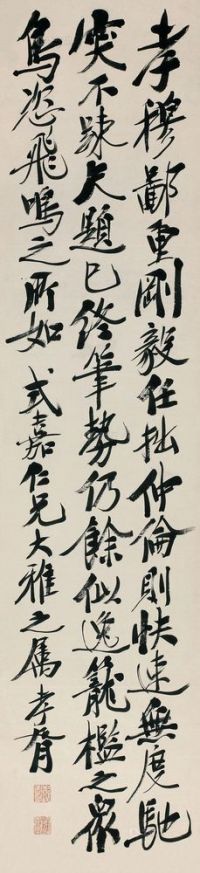 孝穆鄙重剛毅任拙仲倫則快速無度馳
突不踈尺題已終筆勢仍餘似逸籠檻之眾
鳥恣飛鳴之所如 式嘉仁兄大雅之属 孝胥